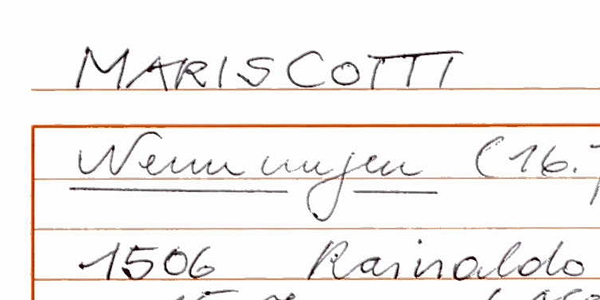 MARISCOTTI
Nennungen (16.
1506 Rainaldo